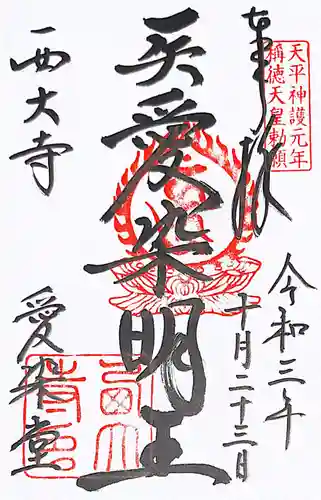 天平神護元年
稱徳天皇勅願
奉拝
令和三年
十月二十三日
愛染明王
西大寺
愛染堂